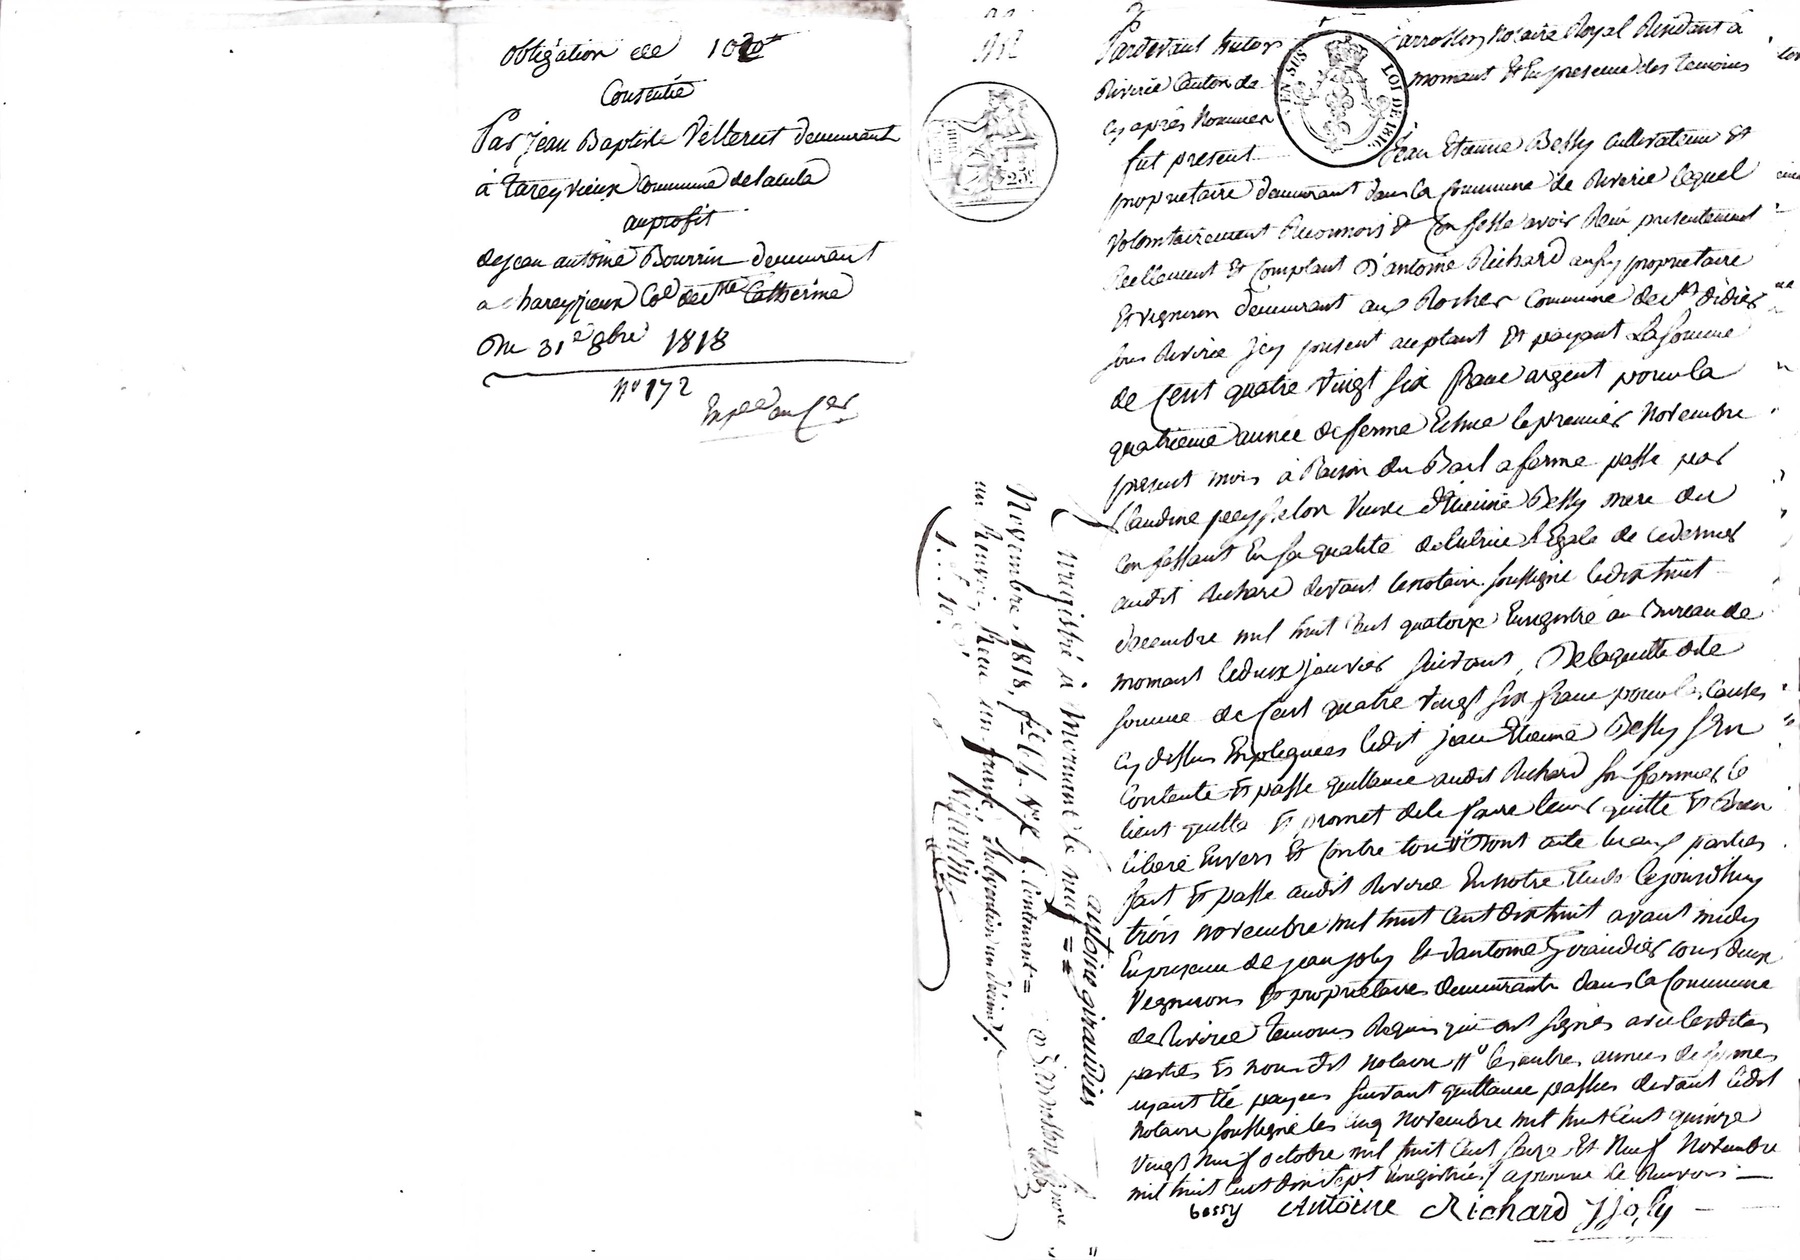 obligation de 1020 f
Consentie
Par Jean Baptiste Velterut demeurant
à tareyvieux Commune de lacula
au profit
de jean antoine Bourrin demeurant
a chareyzieux Cne de Ste Catherine
Du 31e 8bre 1818
N° 172
Expée au Cer
Pardevant Carrossen Notaire Royal Résidant à
Riverie Canton de mornant Et En presence des temoins
Cy après Nommés
fut present Jean Etienne Bessy cultivateur Et
proprietaire demeurant dans la Commune de Riverie lequel
Volontairement Reconnois Et Confesse avoir Reçu presentement
Reellement Et Comptant D'antoine Richard proprietaire
Et vigneron demeurant aux Rocher Commune de St didier
sous Riverie Jcy present aceptant Et payant La somme
de Cent quatre Vingt Six franc argent pour la
quatrieme année de ferme Echue le premier Novembre
present mois à Raison du Bail a ferme passé par
Claudine peeysselon Veuve d'Etienne Bessy mere du
Confessant En sa qualité de tutrice Légale de ce dernier
audit Richard devant le notaire soussigné le dix huit
decembre mil huit Cent quatorze Enregistré au Bureau de
mornant le deux janvier suivant, De laquelle dite
somme de Cent quatre Vingt Six franc pour les Causes
Cy dessus Expliquées ledit jean Etienne Bessy s'En
Contente Et passe quittance audit Richard son fermier le
tient quitte Et promet de le faire tenir quitte Et Bien
libéré Envers Et Contre tous Dont acte lu aux parties
fait Et passé audit Riverie En notre Etude Cejourd'huy
trois novembre mil huit Cent dix huit avant midy
En presence de jean joly Et d'antoine Giraudier tous deux
Vignerons Et proprietaires demeurants dans la Commune
de Riverie temoins Requis qui ont signés avec lesdites
parties Et nous dit notaire les autres années de ferme
ayant Eté payées suivant quittance passées devant ledit
Notaire soussigné les cinq Novembre mil huit Cent quinze
Vingt Neuf octobre mil huit Cent seize Et Neuf Novembre
mil huit Cent dix sept Enregistrées / aprouvé le Renvois
bessy Antoine Richard J joly
antoine giraudier
Enregistré à Mornant le neuf
Novembre 1818, fº 64 Vº C. 6. Contenant
un Renvoi, Reçu un franc, Subvention un décime
1....f 10.c
EN SUS
LOI DE 1816
25c